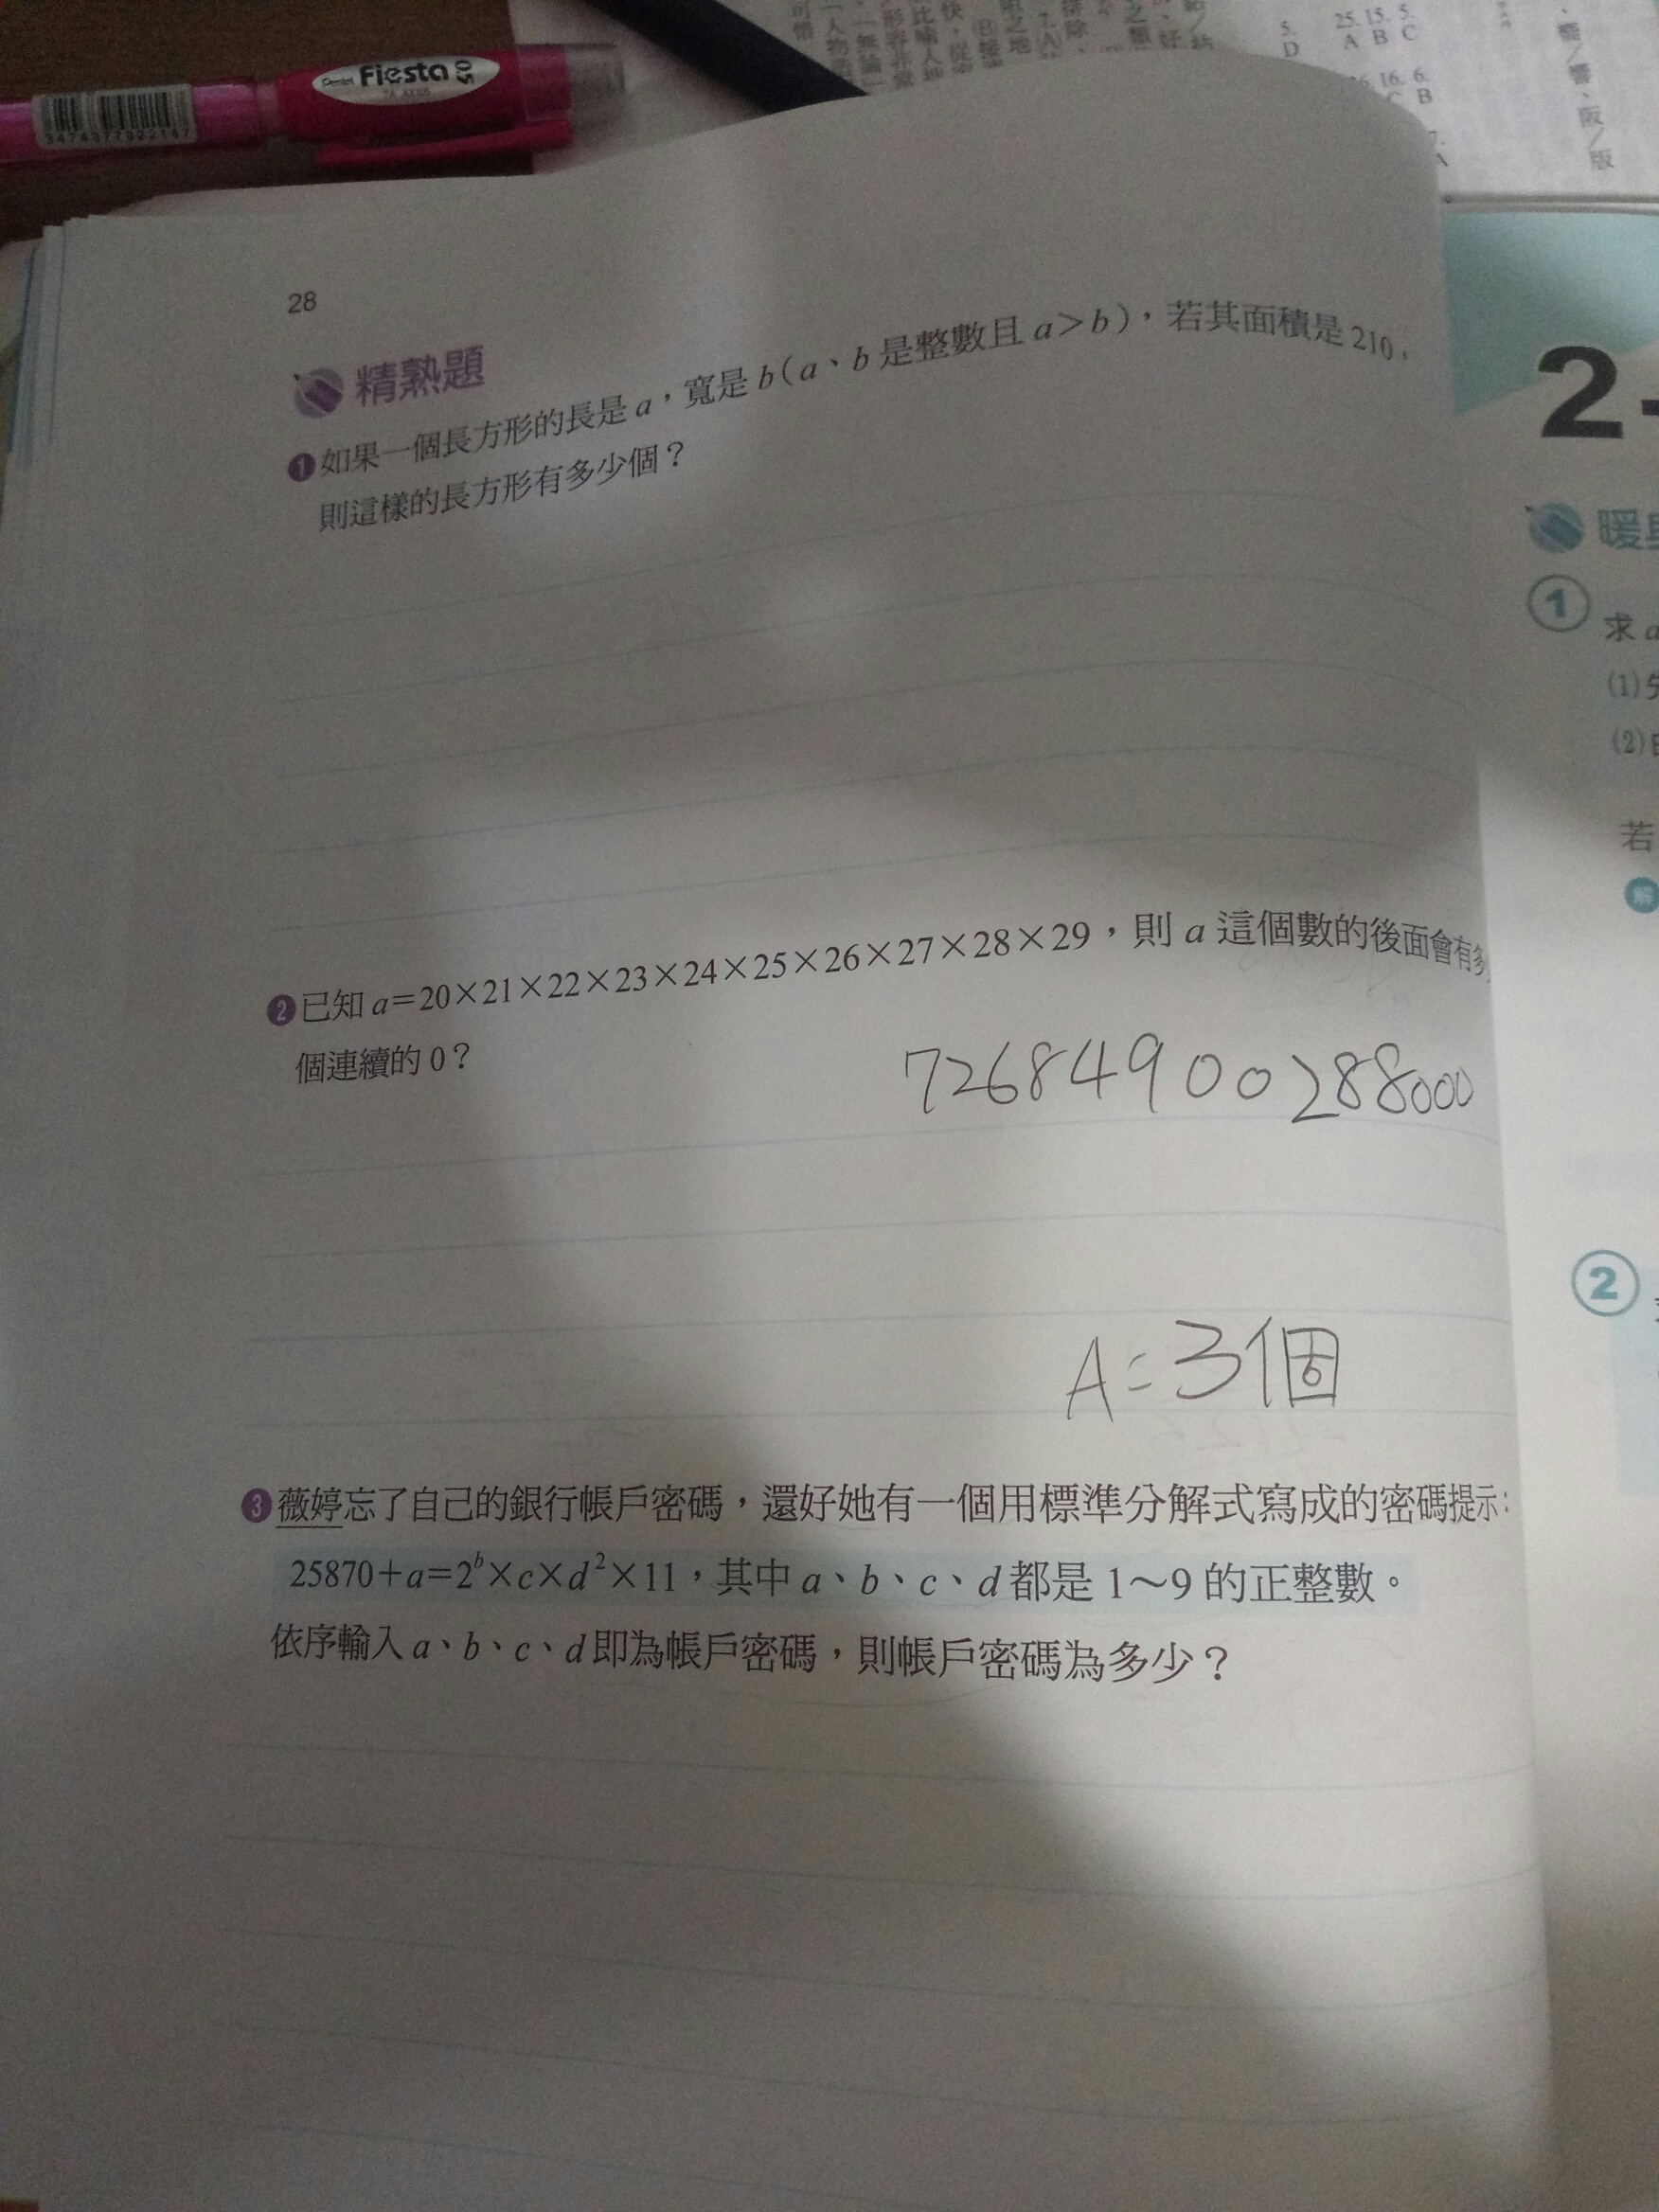 Pentel Fiesta 0.5
7A AX105
3474377922147
5. D
25. 15. 5.
A B C
16. 6.
C B
響/響、阪/版
28
精熟題
1 如果一個長方形的長是 a，寬是 b（a、b 是整數且 a＞b），若其面積是 210，
則這樣的長方形有多少個？
2 已知 a=20×21×22×23×24×25×26×27×28×29，則 a 這個數的後面會有多
個連續的 0？
72684900288000
A=3個
3 薇婷忘了自己的銀行帳戶密碼，還好她有一個用標準分解式寫成的密碼提示：
25870+a=2ᵇ×c×d²×11，其中 a、b、c、d 都是 1～9 的正整數。
依序輸入 a、b、c、d 即為帳戶密碼，則帳戶密碼為多少？
2-
暖
1 求 a
(1)
(2)
若
解
2